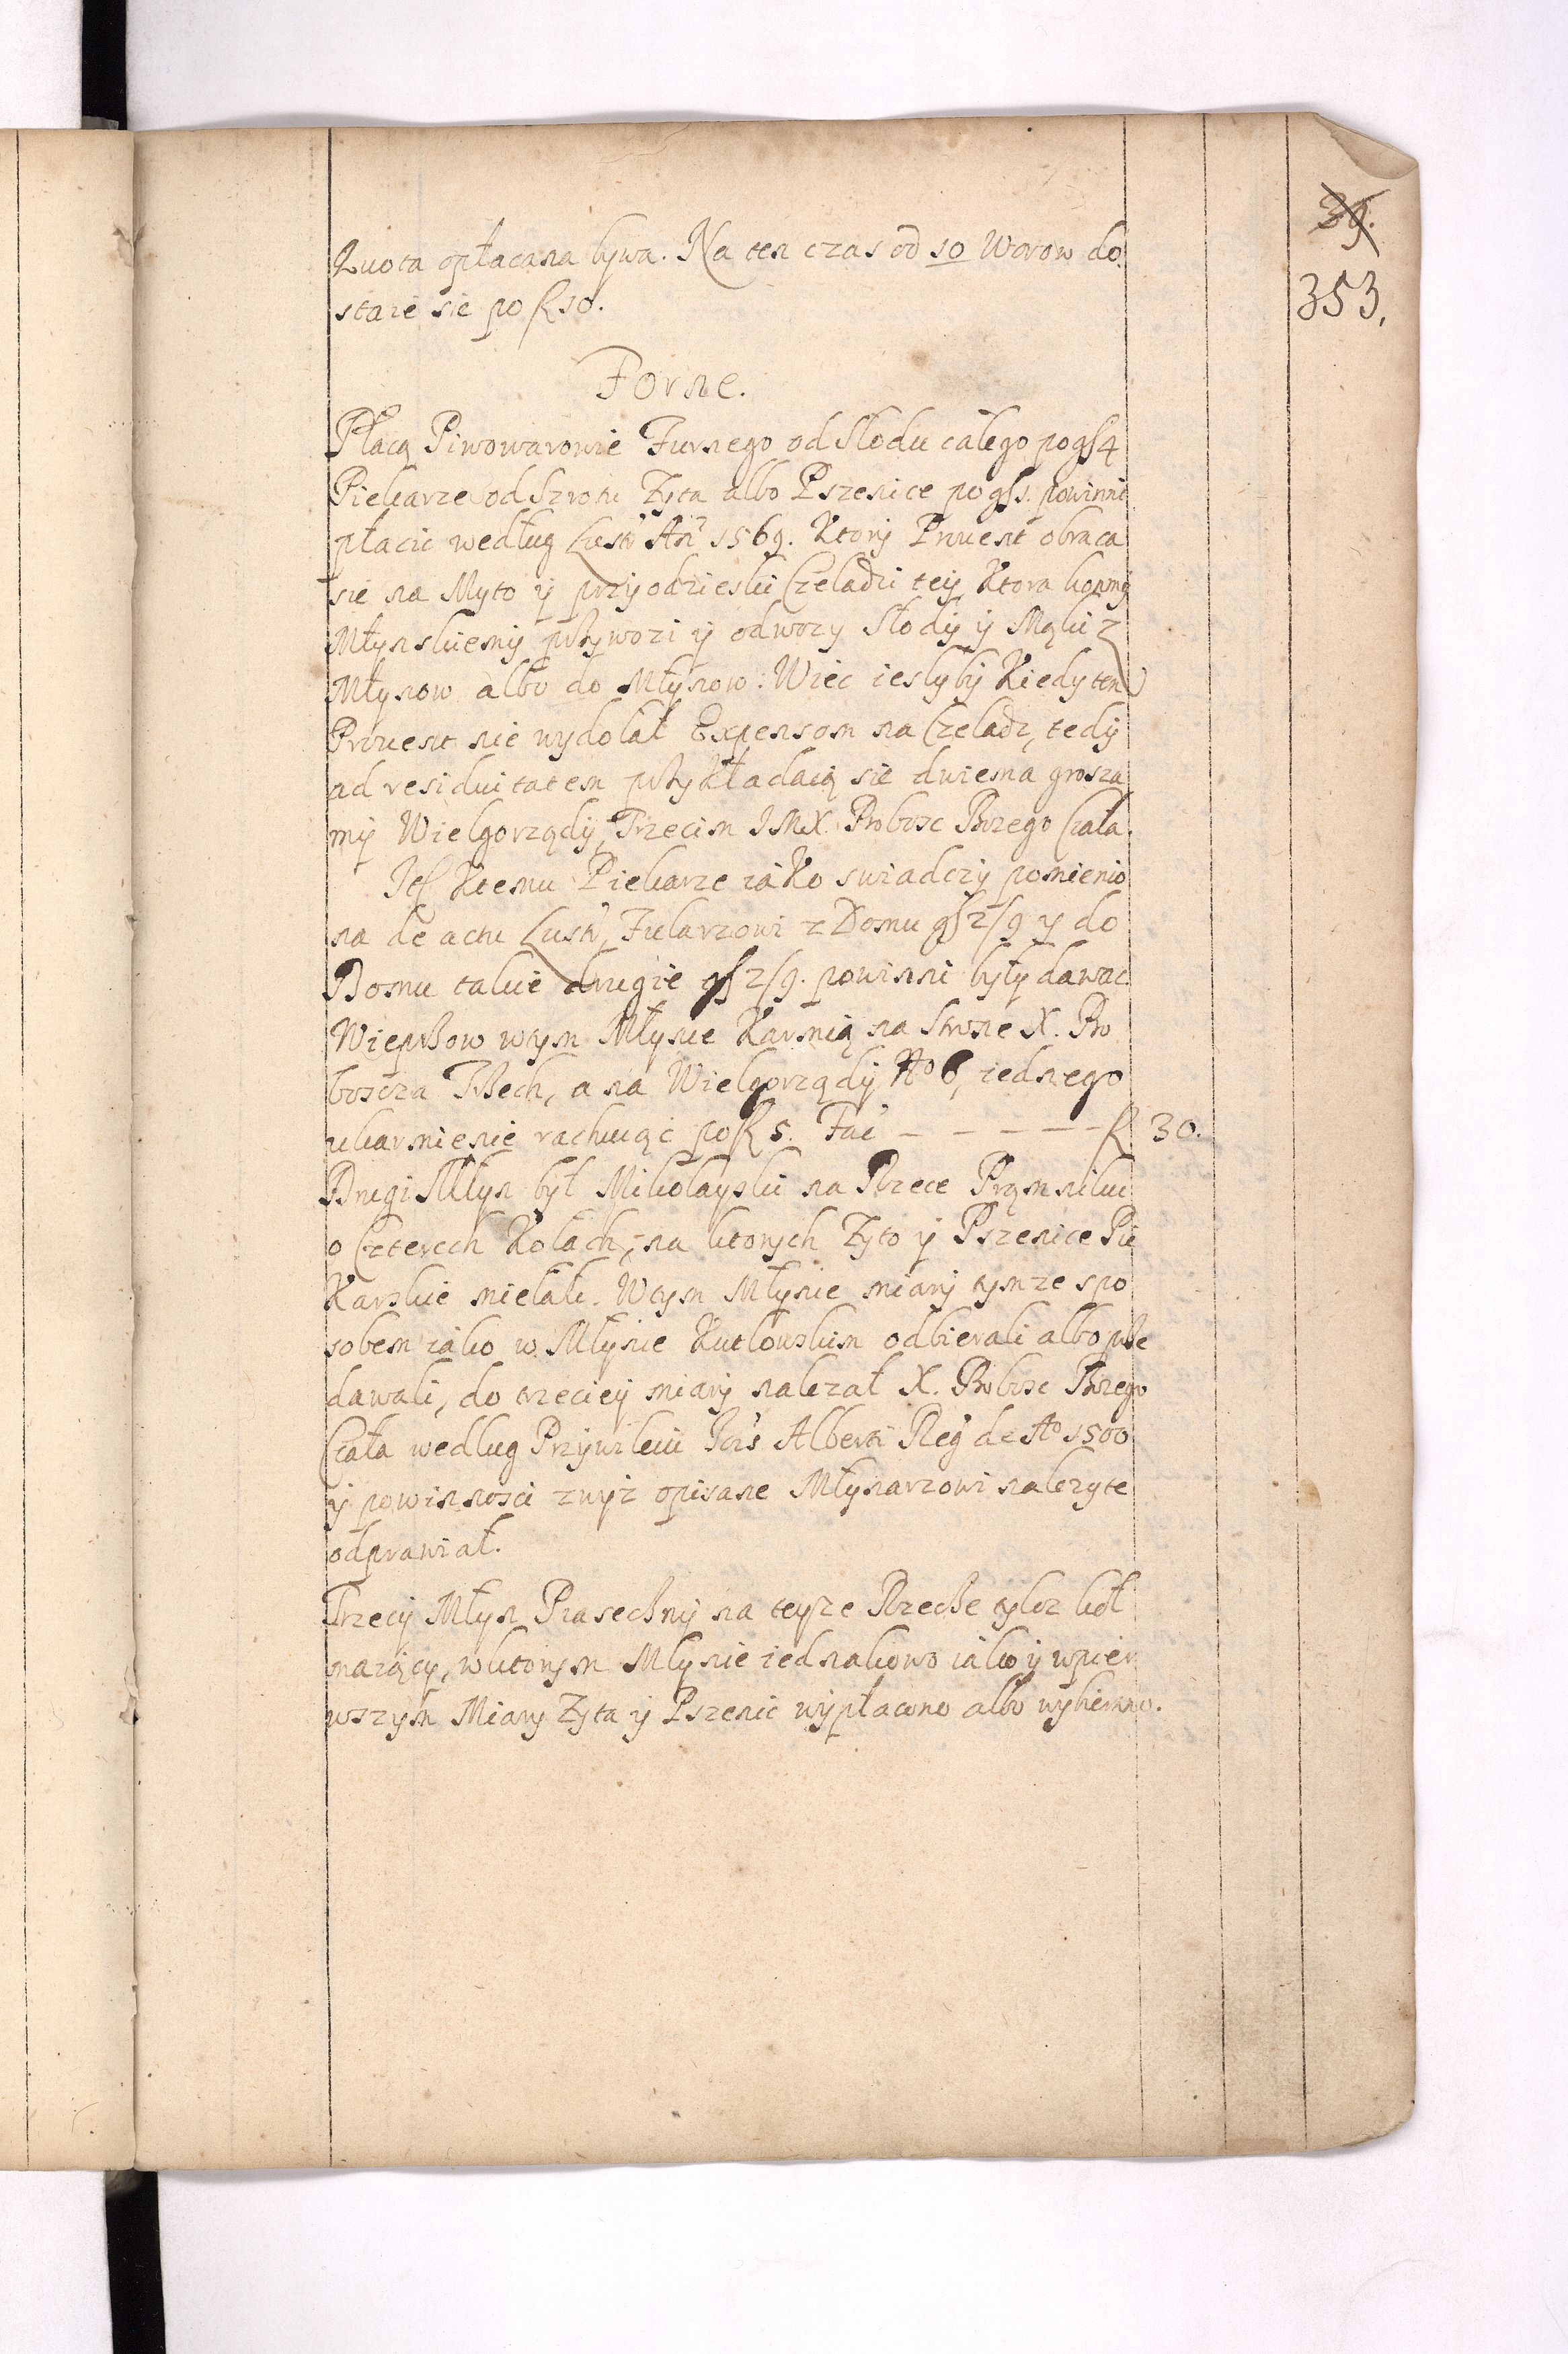 39.
353.
Kuota opłacana bywa. Na ten czas od 10 Worow do
staie sie po f 10.
Forne.
Płacą Piwowarowie Furnego od Słodu całego po gſ 4
Piekarze od Szrotu Zyta albo Pszenice po gſ 1. powinni
płacic według Lustr Aň 1569. Ktory Prouent obraca
sie na Myto ÿ przyodzieski Czeladzi teÿ, Ktora końmÿ
Młynskiemÿ pſzywozi ÿ odwozy Słodÿ ÿ Mąki z
Młynow albo do Młynow: Wiec iesly bÿ Kiedy ten
Prouent nie wydołał Expensom na Czeladz, tedÿ
ad residuitatem pſzykładaią sie dwiema grosza
mÿ Wielgorządÿ, Trzecim JMX. Probosc Bozego Ciała.
Jtſ Ktemu Piekarze iako swiadczÿ pomienio
na de actu Lustr, Fularzowi z Domu gſ 2/9 y do
Domu takie drugie gſ 2/9. powinni bÿłÿ dawac.
Wiepſzow wtym Młynie Karmią na Strone X. Pro
boscza Tſzech, a na Wielgorządÿ No 6, iednego
ukarmienie rachuiąc po f 5. Faċ — — — — — f 30.
Drugi Młyn był Mikołayski na Rzece Prąmniku
o Czterech Kołach, na ktorych Zyto ÿ Pszenice Pie
Karskie mielali. Wtym Młynie miarÿ tymze spo
sobem iako w Młynie Kutlowskim odbierali albo pſze
dawali, do trzecieÿ miarÿ nalezał X. Probosc Bozego
Ciała według Przywileiu Jois Alberti Reg de Ao 1500
ÿ powinnosci zwyz opisane Młynarzowi nalezyte
odprawiał.
Trzecÿ Młyn Piasecſznÿ na teyze Rzecſze tylez kół
maiącÿ, wktorym Młynie iednakowo iako ÿ wpier
wszym Miarÿ Zyta ÿ Pszenic wÿpłacono albo wybierano.